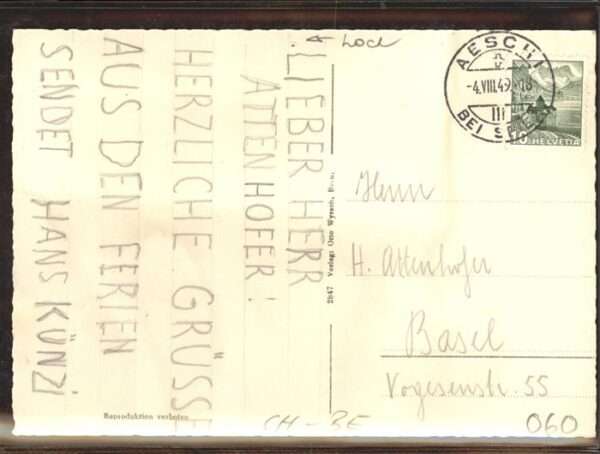 LIEBER HERR
ATTENHOFER!
HERZLICHE GRÜSSE
AUS DEN FERIEN
SENDET HANS KÜNZI
Reproduktion verboten
2847 Verlag: Otto Wyssen, Bern.
AESCHI
-4.VIII.49.
BEI
HELVETIA
Herrn
H. Attenhofer
Basel
Vogesenstr. 55
CH-BE
060